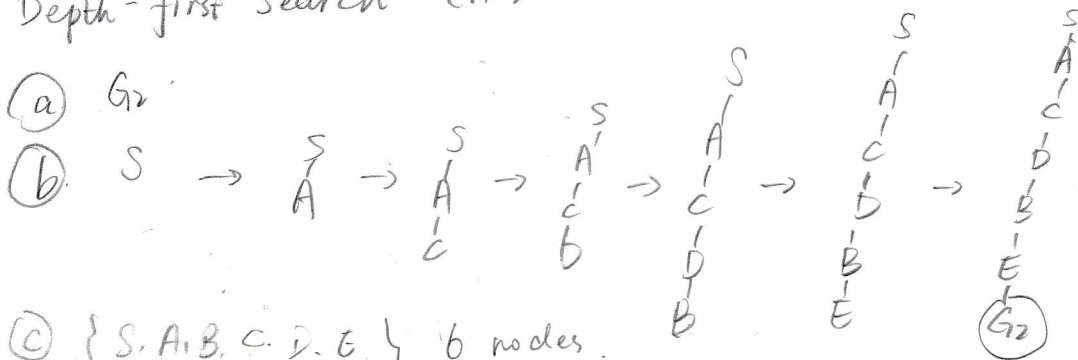 Depth-first search
(a) G2
(b). S → S A → S A C → S A C D → S A C D B → S A C D B E → S A C D B E G2
(c) { S. A. B. C. D. E } 6 nodes.